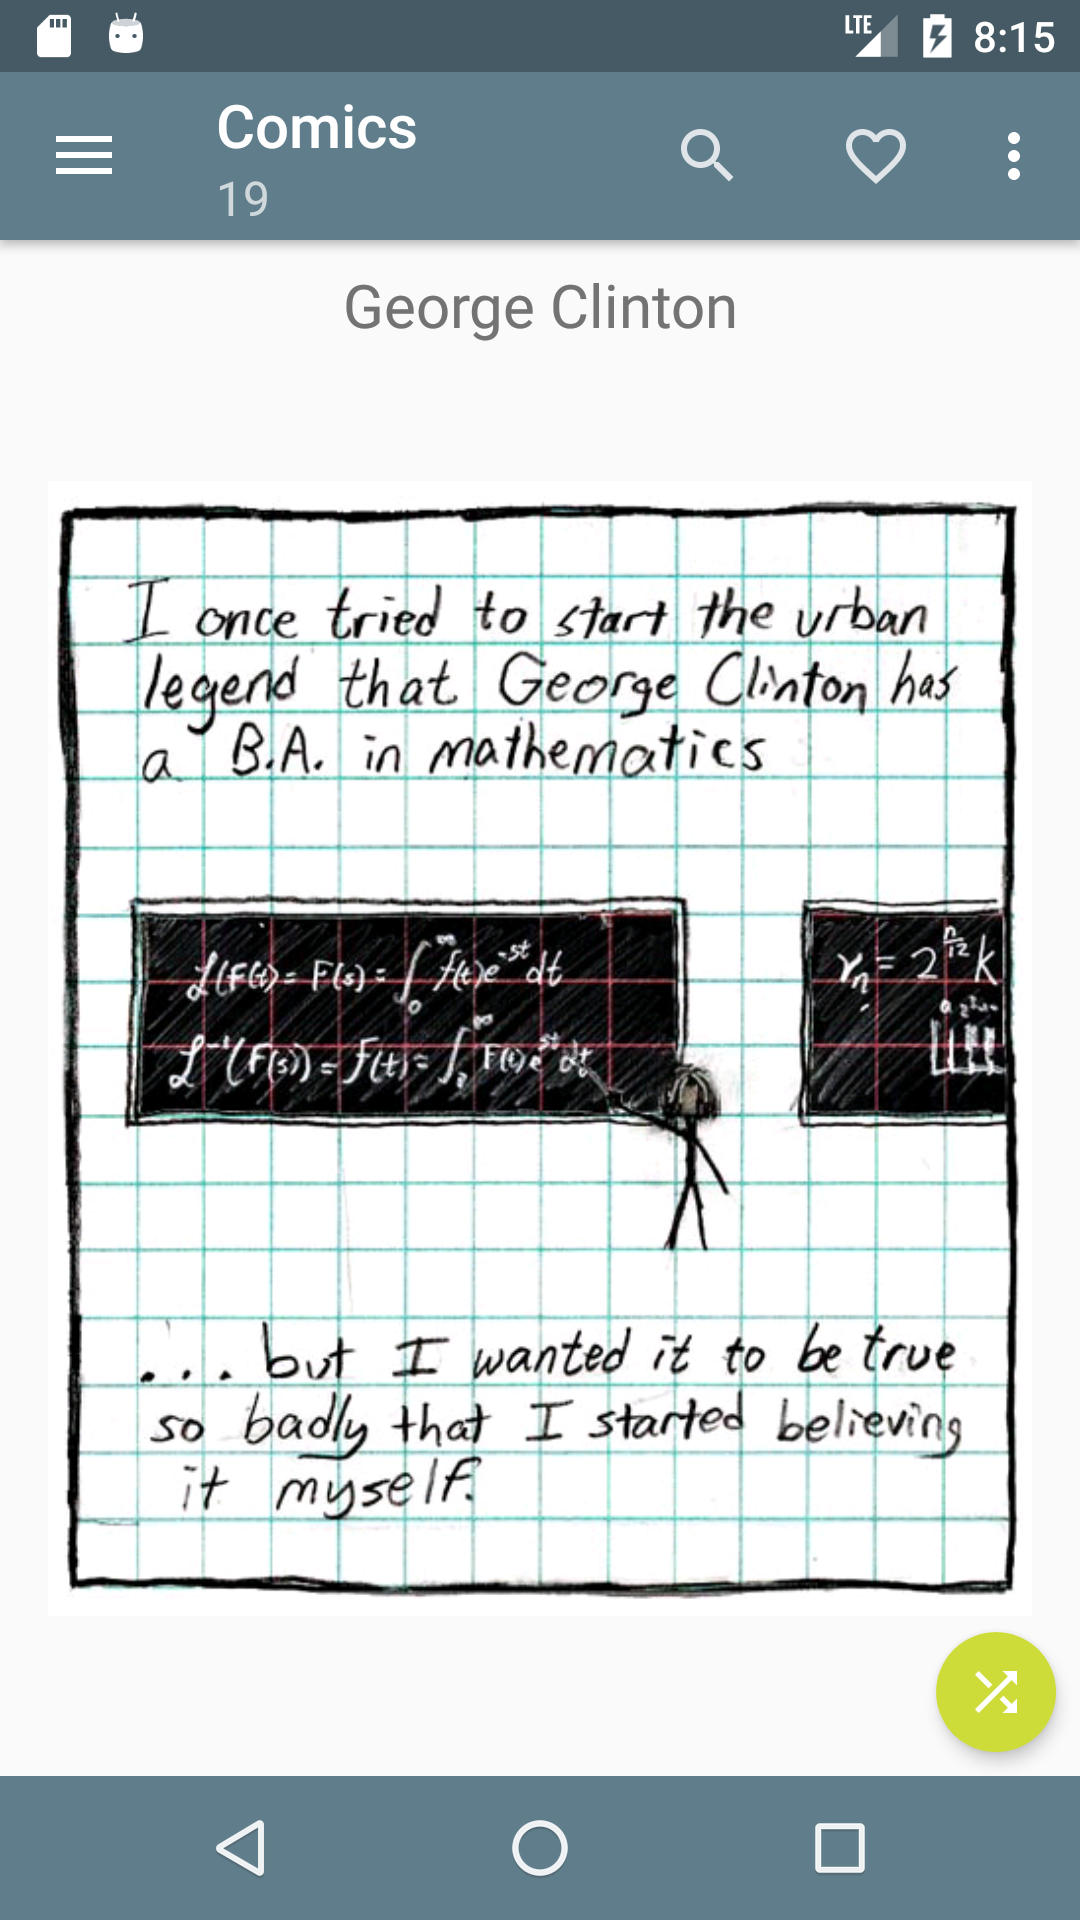 LTE 8:15
Comics
19
George Clinton
I once tried to start the urban
legend that George Clinton has
a B.A. in mathematics
ℒ(F(t)) = F(s) = ∫₀^∞ f(t)e^-st dt
ℒ⁻¹(F(s)) = f(t) =
rₙ = 2^(n/12) k
... but I wanted it to be true
so badly that I started believing
it myself.